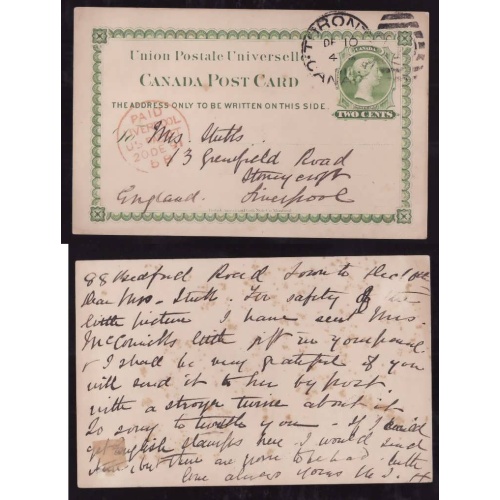 Union Postale Universelle
CANADA POST CARD
THE ADDRESS ONLY TO BE WRITTEN ON THIS SIDE.
CANADA
TWO CENTS
TORONTO
DE 10
PAID
LIVERPOOL
20 DE
To Mrs. Stubbs.
13 Greenfield Road
Stoneycroft
Liverpool
England.
88 Bedford Road Toronto Dec 10th
Dear Mrs. Stubbs. For safety of the
little picture I have sent Mrs.
McCormicks little in your parcel
& I shall be very grateful if you
will send it to her by post.
with a stronger twine about it
So sorry to trouble you - If I could
get English stamps here I would send
some, but there are none to be had. with
love always yours